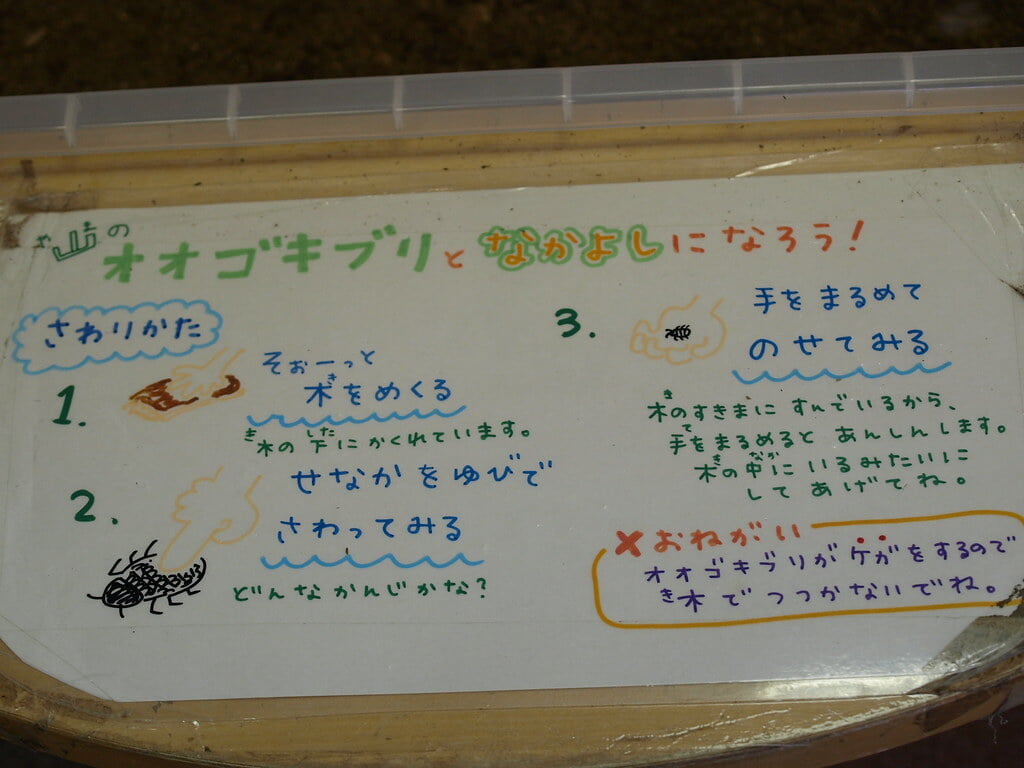 山の
オオゴキブリとなかよしになろう!
さわりかた
1.
そぉーっと
木をめくる
木の下にかくれています。
2.
せなかをゆびで
さわってみる
どんなかんじかな?
3.
手をまるめて
のせてみる
木のすきまにすんでいるから、
手をまるめるとあんしんします。
木の中にいるみたいに
してあげてね。
×おねがい
オオゴキブリがケガをするので
木でつつかないでね。